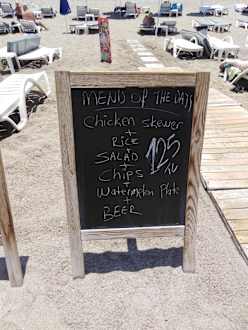 MENU OF THE DAYS
Chicken skewer
+
RICE
+
SALAD
+
Chips
+
Watermelon Plate
+
BEER
125